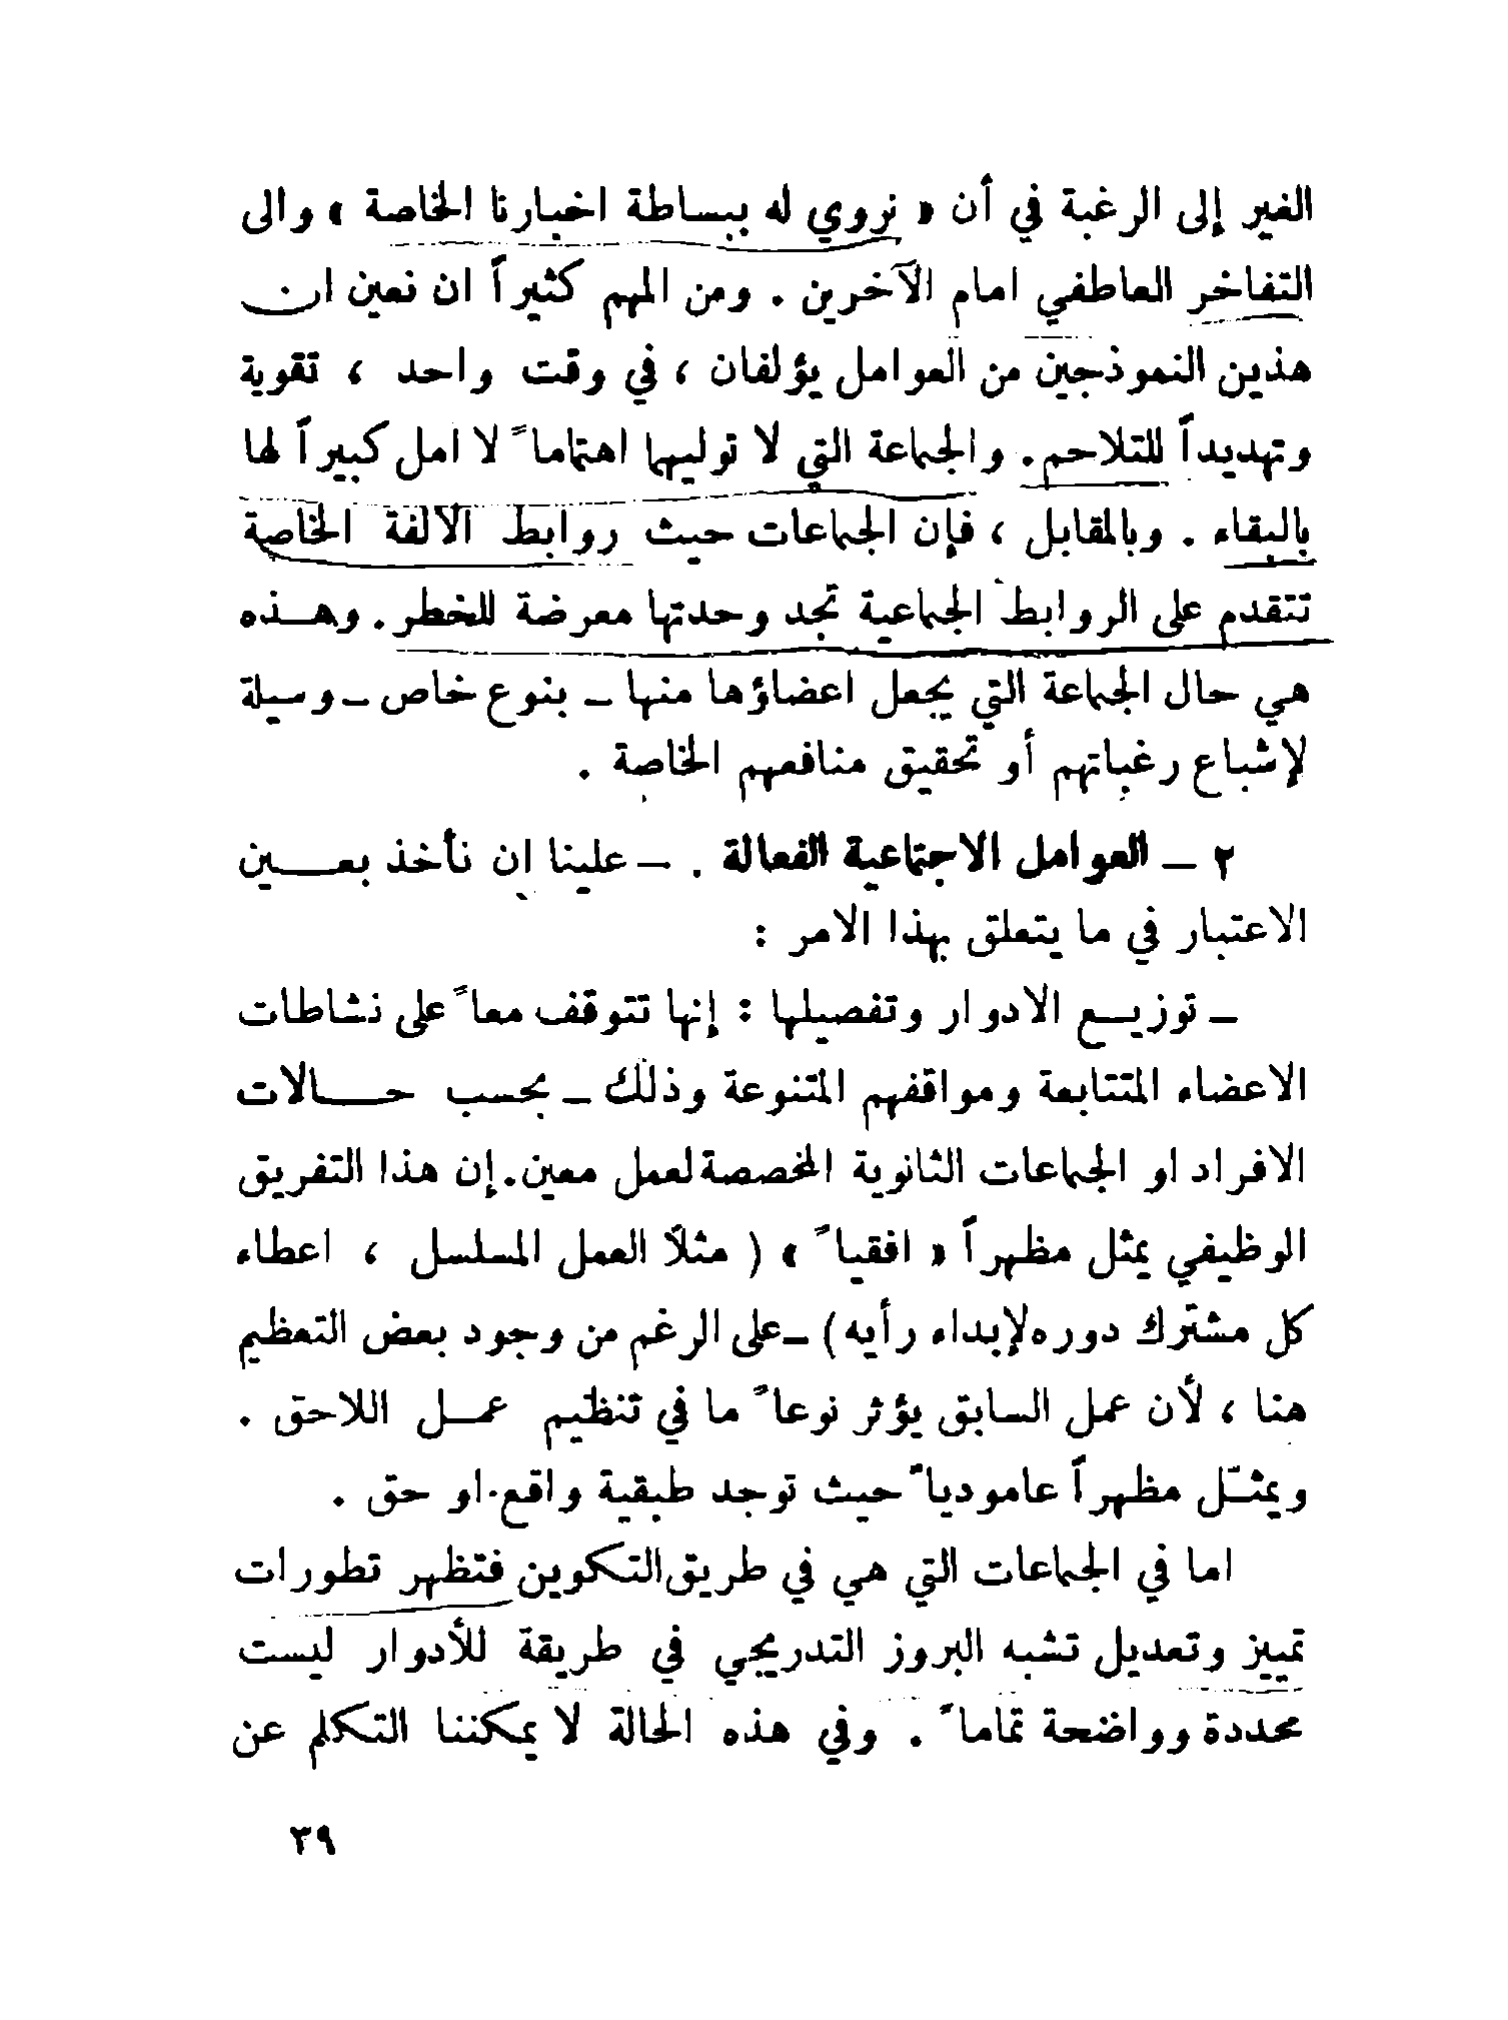 الغير إلى الرغبة في أن « نروي له ببساطة اخبارنا الخاصة » والى
التفاخر العاطفي امام الآخرين . ومن المهم كثيراً ان نعين ان
هذين النموذجين من العوامل يؤلفان ، في وقت واحد ، تقوية
وتهديداً للتلاحم . والجماعة التي لا توليها اهتماماً لا امل كبيراً لها
بالبقاء . وبالمقابل ، فإن الجماعات حيث روابط الالفة الخاصة
تتقدم على الروابط الجماعية تجد وحدتها معرضة للخطر . وهـذه
هي حال الجماعة التي يجعل اعضاؤها منها ـ بنوع خاص ـ وسيلة
لإشباع رغباتهم أو تحقيق منافعهم الخاصة .
٢ ـ العوامل الاجتماعية الفعالة . ـ علينا ان نأخذ بعــين
الاعتبار في ما يتعلق بهذا الامر :
ـ توزيـع الادوار وتفصيلها : إنها تتوقف معاً على نشاطات
الاعضاء المتتابعة ومواقفهم المتنوعة وذلك ـ بحسب حــالات
الافراد او الجماعات الثانوية المخصصة لعمل معين . إن هذا التفريق
الوظيفي يمثل مظهراً « افقياً » ( مثلاً العمل المسلسل ، اعطاء
كل مشترك دوره لإبداء رأيه ) ـ على الرغم من وجود بعض التعظيم
هنا ، لأن عمل السابق يؤثر نوعاً ما في تنظيم عمـل اللاحق .
ويمثـّل مظهراً عامودياً حيث توجد طبقية واقع او حق .
اما في الجماعات التي هي في طريق التكوين فتظهر تطورات
تمييز وتعديل تشبه البروز التدريجي في طريقة للأدوار ليست
محددة وواضحة تماماً . وفي هذه الحالة لا يمكننا التكلم عن
٣٩